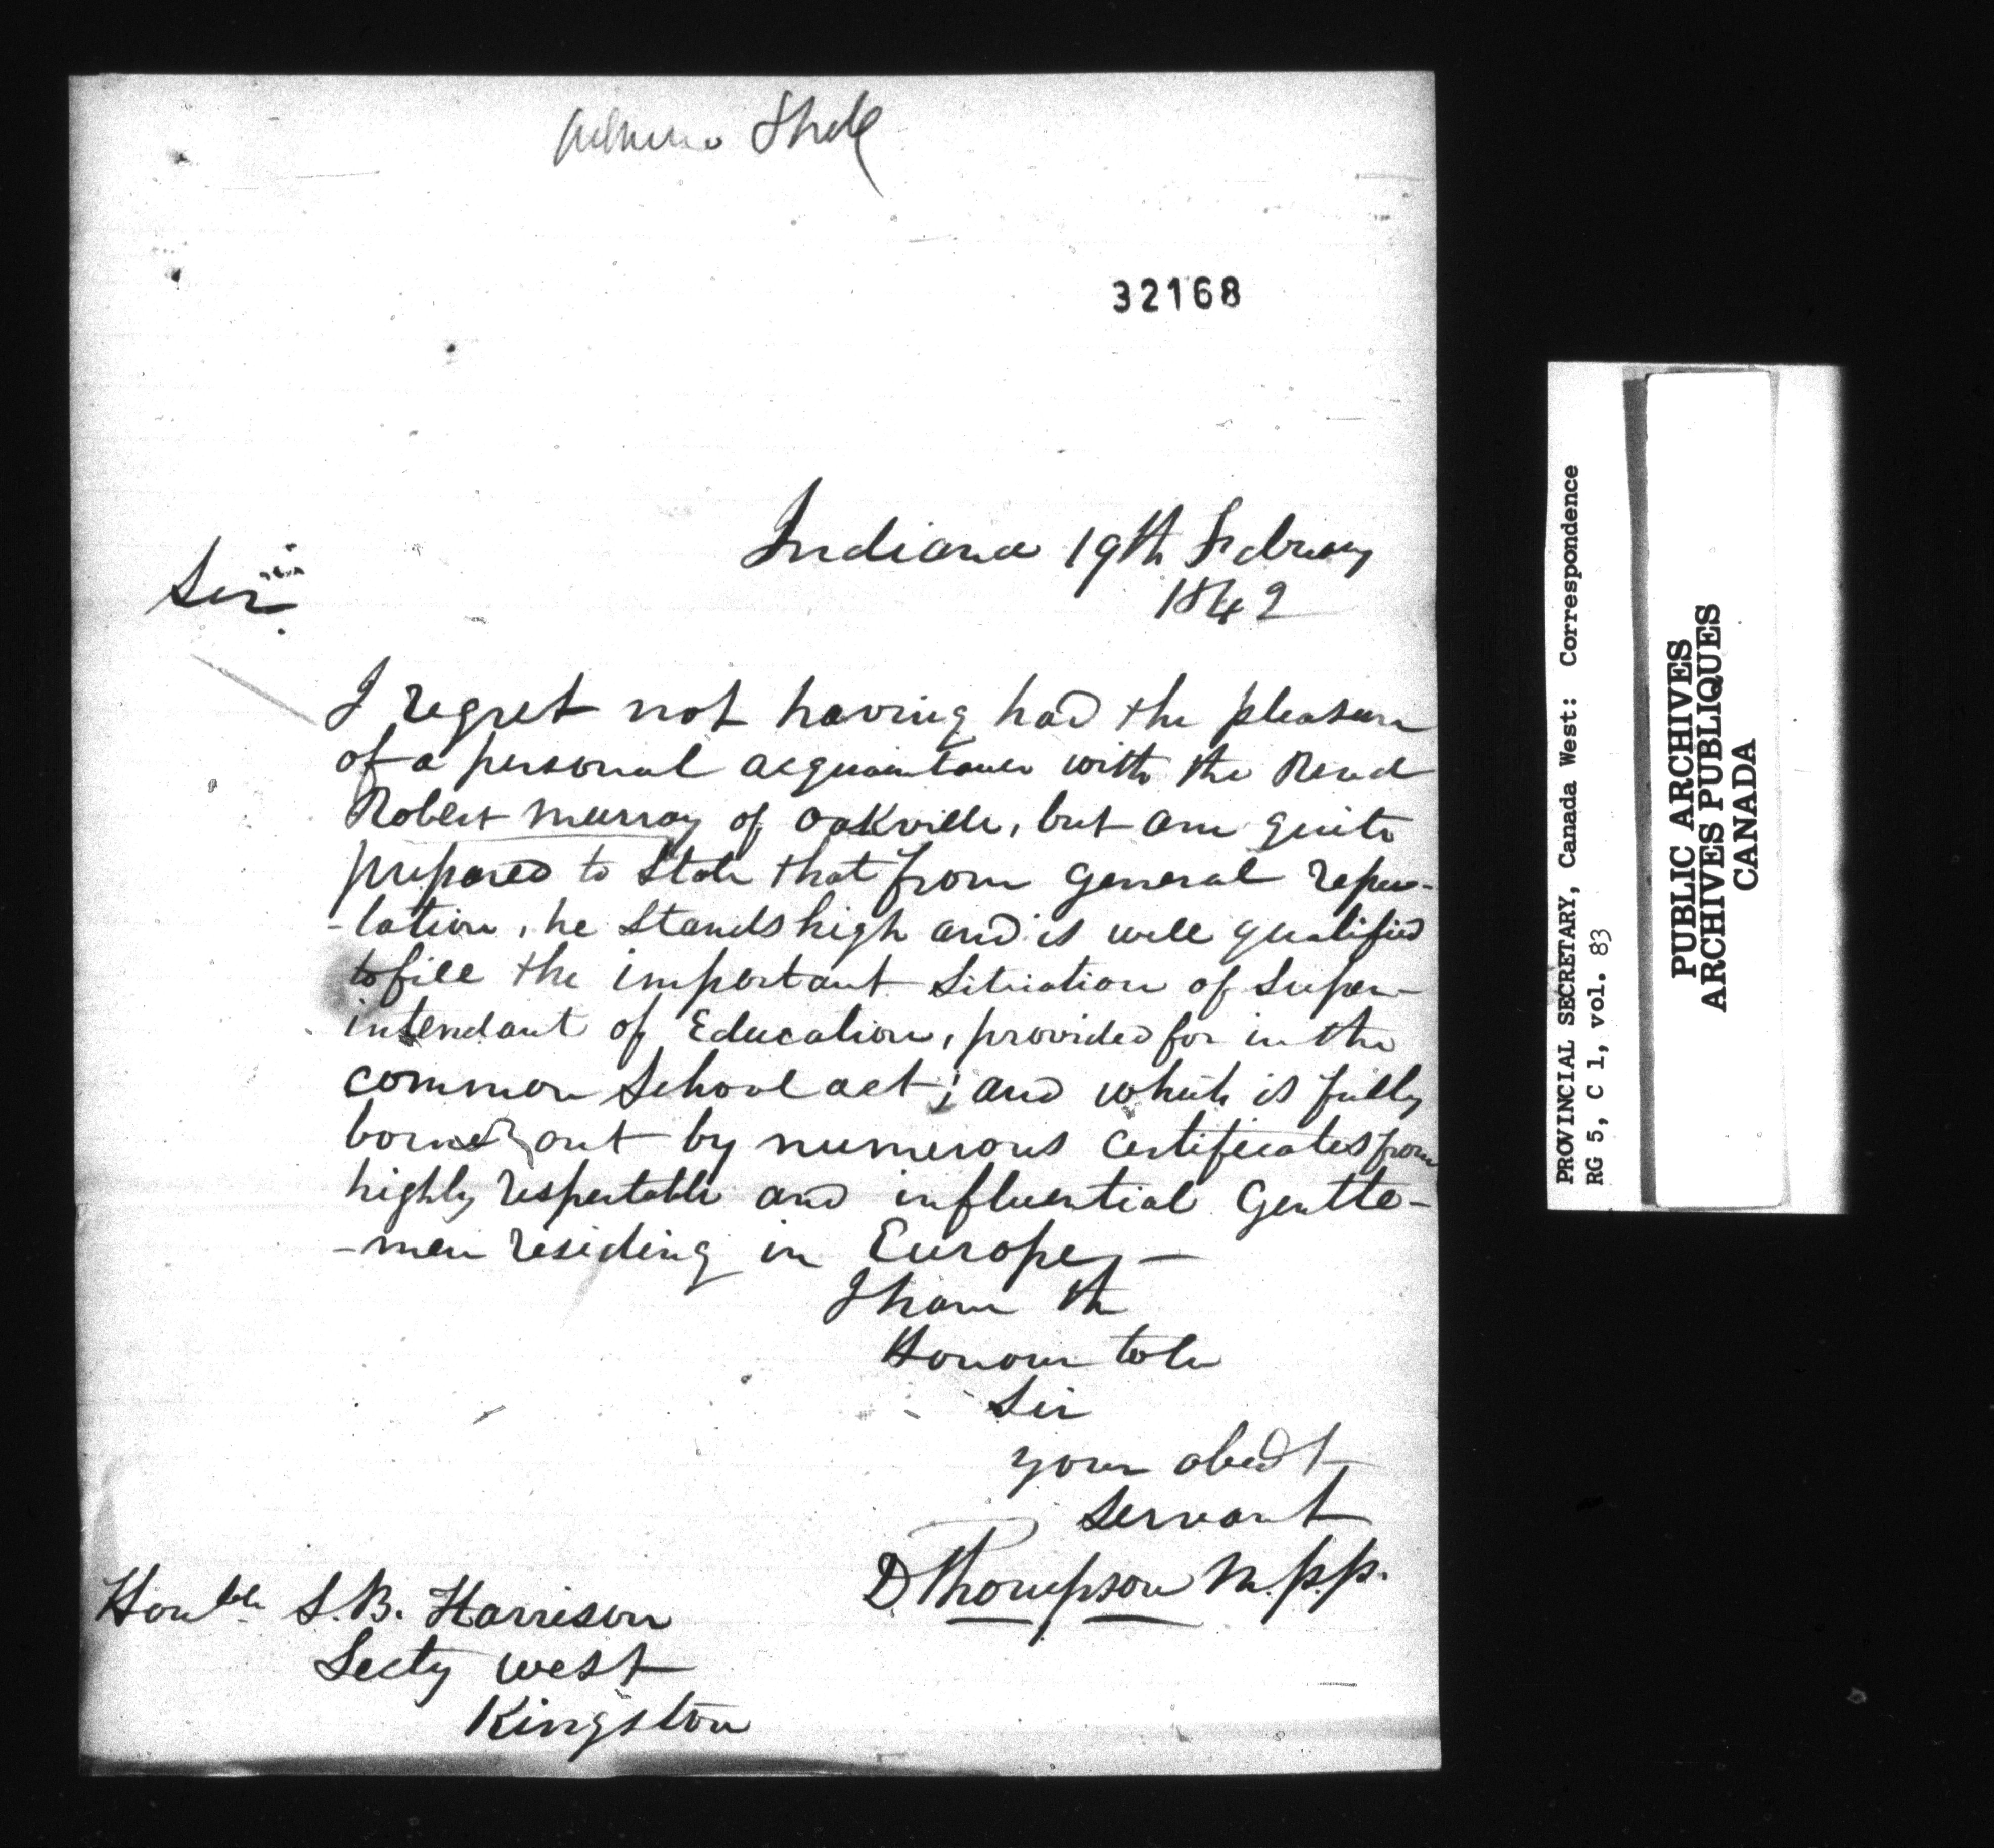 32168
Indiana 19th February
1842
Sir
I regret not having had the pleasure
of a personal acquaintance with the Revd
Robert Murray of Oakville, but am quite
prepared to State that from general repu-
-tation, he Stands high and is well qualified
to fill the important Situation of Super-
intendant of Education, provided for in the
common School act; and which is fully
borne out by numerous Certificates from
highly respectable and influential Gentle-
-men residing in Europe,-
I have the
Honour to be
Sir
your obedt
Servant
D Thompson M.p.p.
Honble S. B. Harrison
Secty west
Kingston
PROVINCIAL SECRETARY, Canada West: Correspondence
RG 5, C 1, vol. 83
PUBLIC ARCHIVES
ARCHIVES PUBLIQUES
CANADA